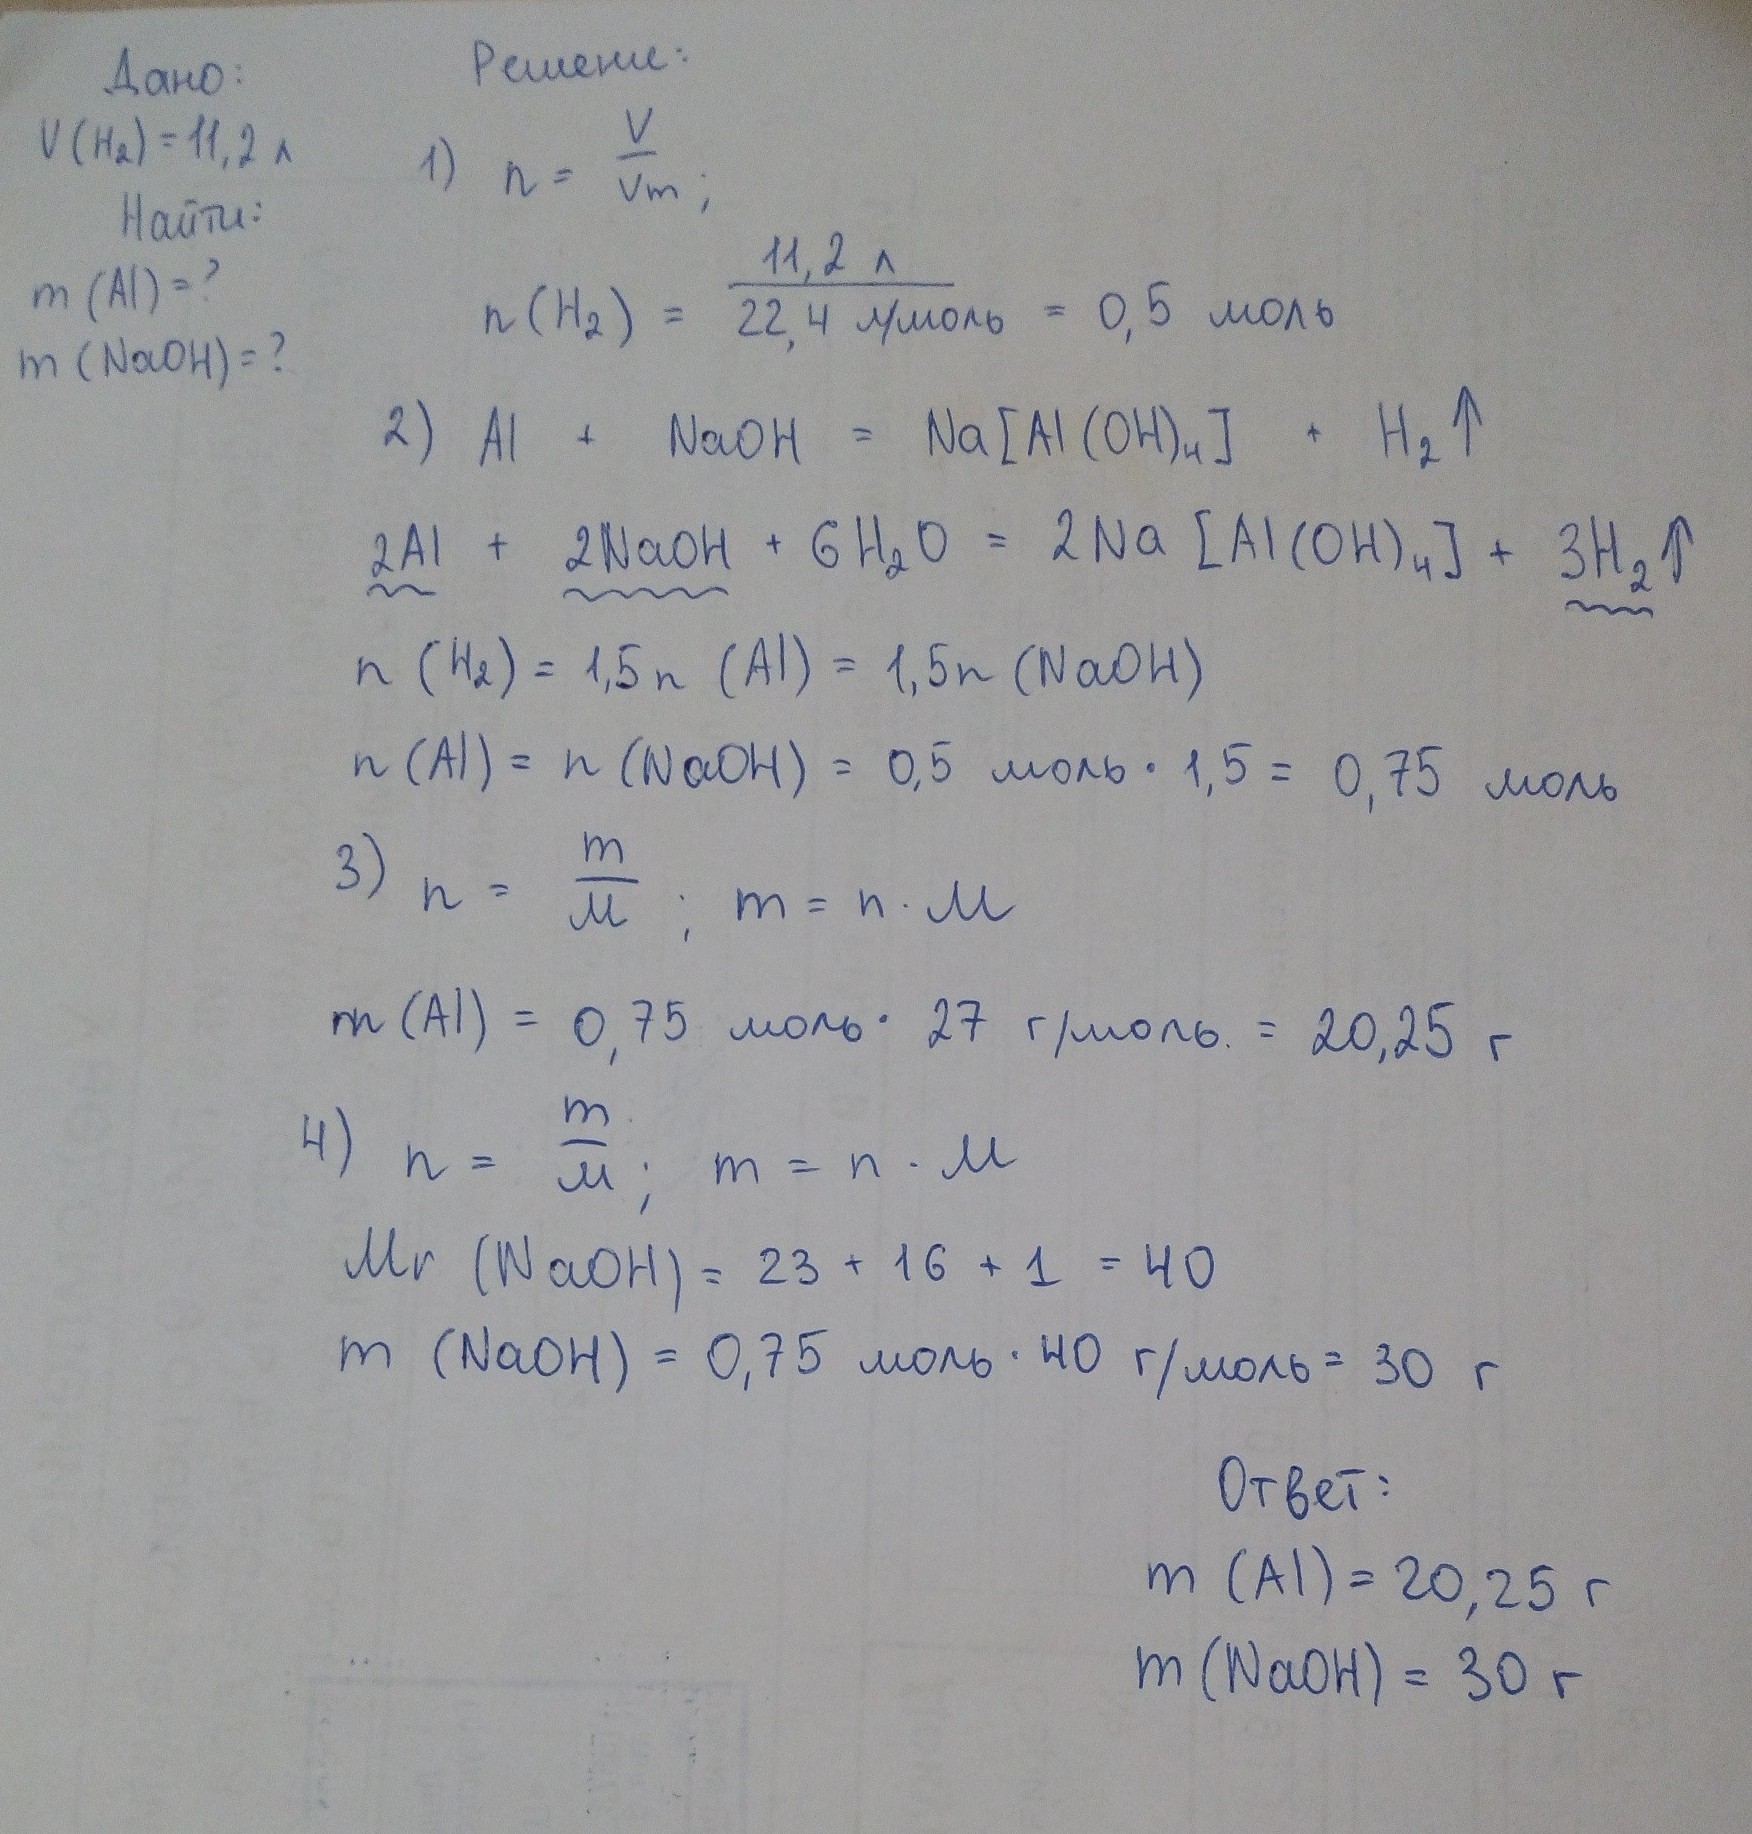 Дано:
V(H₂)=11,2 л
Найти:
m(Al)=?
m(NaOH)=?
Решение:
1) n = V/Vm;
n(H₂) = 11,2 л / 22,4 л/моль = 0,5 моль
2) Al + NaOH = Na[Al(OH)₄] + H₂↑
2Al + 2NaOH + 6H₂O = 2Na[Al(OH)₄] + 3H₂↑
n(H₂) = 1,5n(Al) = 1,5n(NaOH)
n(Al) = n(NaOH) = 0,5 моль · 1,5 = 0,75 моль
3) n = m/M; m = n · M
m(Al) = 0,75 моль · 27 г/моль. = 20,25 г
4) n = m/M; m = n · M
Mr(NaOH) = 23 + 16 + 1 = 40
m(NaOH) = 0,75 моль · 40 г/моль = 30 г
Ответ:
m(Al) = 20,25 г
m(NaOH) = 30 г